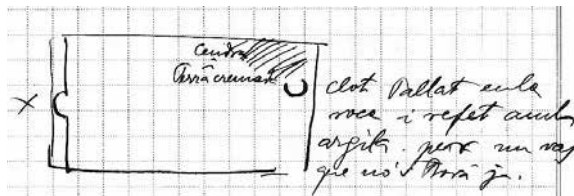 Cendra
Terra cremada
X
clot tallat en la
roca i refet amb
argila. per a un vas
que no s'